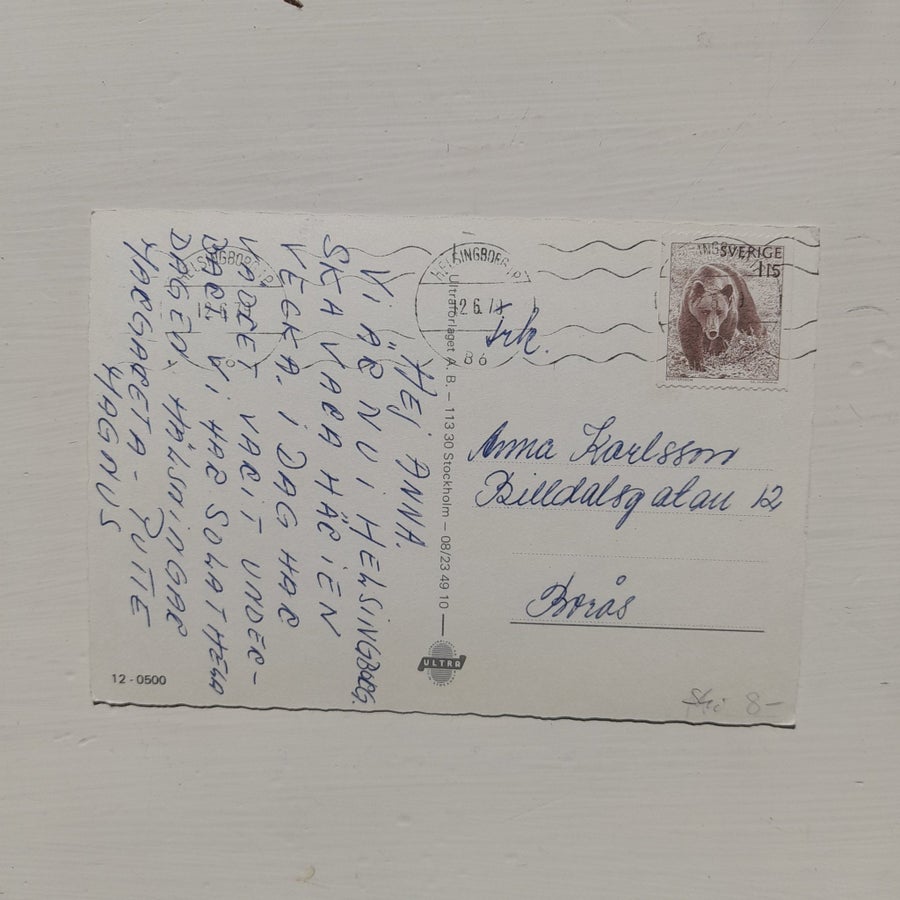 HEJ ANNA.
VI ÄR NU I HELSINGBORG.
SKA VARA HÄR I EN
VECKA. I DAG HAR
VÄDRET VARIT UNDER-
BART VI HAR SOLAT HELA
DAGEN. HÄLSNINGAR
MARGARETA - PUTTE
MAGNUS
12 - 0500
Ultraförlaget A. B. – 113 30 Stockholm – 08/23 49 10
ULTRA
HELSINGBORG
12.6.7
86
SVERIGE
115
frk.
Anna Karlsson
Billdalsgatan 12
Borås
8-